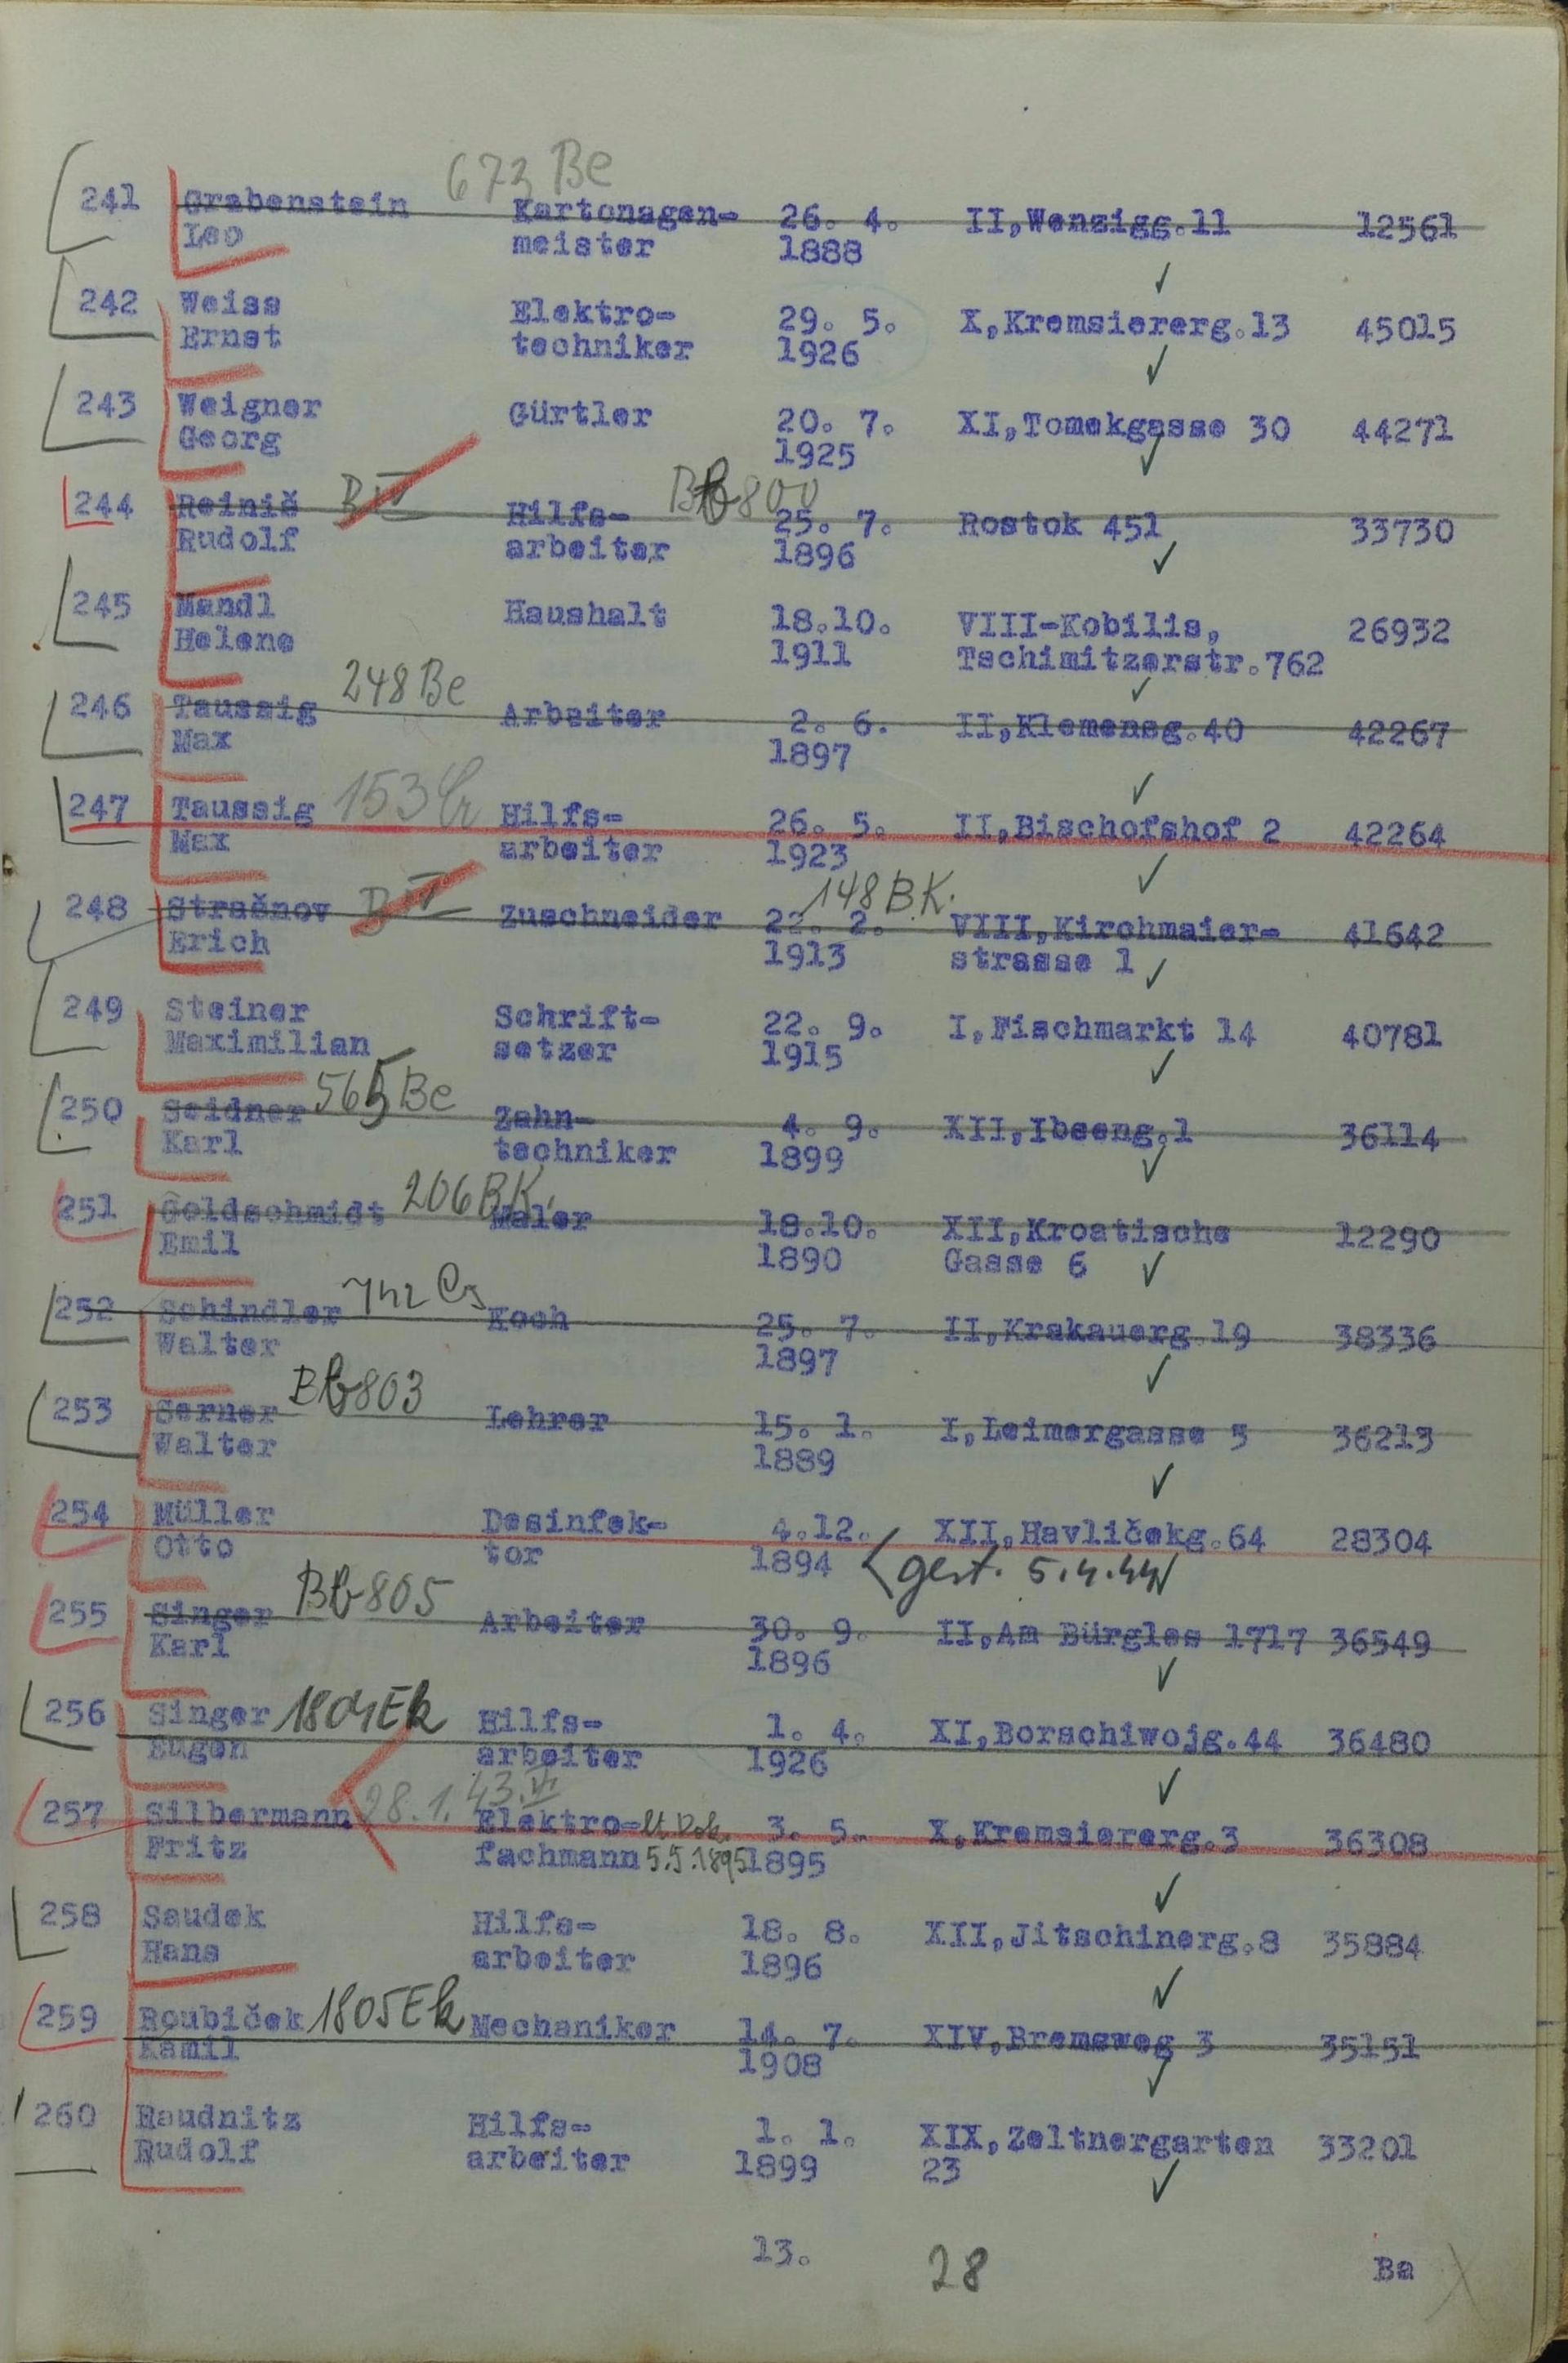 673 Be
241 Grabenstein Kartonagen- 26. 4. II,Wenzigg.11 12561
Leo meister 1888
242 Weiss Elektro- 29. 5. X,Kremsiererg.13 45015
Ernst techniker 1926
243 Weigner Gürtler 20. 7. XI,Tomekgasse 30 44271
Georg 1925
244 Reinič BIV Hilfs- Bb800 25. 7. Rostok 451 33730
Rudolf arbeiter 1896
245 Mandl Haushalt 18.10. VIII-Kobilis, 26932
Helene 1911 Tschimitzerstr.762
246 Taussig 248 Be Arbeiter 2. 6. II,Klemensg.40 42267
Max 1897
247 Taussig 153 Cr Hilfs- 26. 5. II,Bischofshof 2 42264
Max arbeiter 1923
248 Strašnov BIV Zuschneider 22. 2. 148 BK. VIII,Kirchmaier- 41642
Erich 1913 strasse 1
249 Steiner Schrift- 22. 9. I,Fischmarkt 14 40781
Maximilian setzer 1915
250 Seidner 565 Be Zahn- 4. 9. XII,Ibseng.1 36114
Karl techniker 1899
251 Goldschmidt 206 BK. Maler 18.10. XII,Kroatische 12290
Emil 1890 Gasse 6
252 Schindler 742 Cs Koch 25. 7. II,Krakauerg.19 38336
Walter 1897
253 Serner Bb803 Lehrer 15. 1. I,Leimergasse 5 36213
Walter 1889
254 Müller Desinfek- 4.12. XII,Havličekg.64 28304
Otto tor 1894 gest. 5.4.44
255 Singer Bb805 Arbeiter 30. 9. II,Am Bürgles 1717 36549
Karl 1896
256 Singer 1804 Ek Hilfs- 1. 4. XI,Borschiwojg.44 36480
Eugen arbeiter 1926
257 Silbermann 28.1.43. VI Elektro- lt. Dok. 3. 5. X,Kremsiererg.3 36308
Fritz fachmann 5.5.1895 1895
258 Saudek Hilfs- 18. 8. XII,Jitschinerg.8 35884
Hans arbeiter 1896
259 Roubiček 1805 Ek Mechaniker 14. 7. XIV,Bremsweg 3 35151
Kamil 1908
260 Raudnitz Hilfs- 1. 1. XIX,Zeltnergarten 33201
Rudolf arbeiter 1899 23
13. 28 Ba